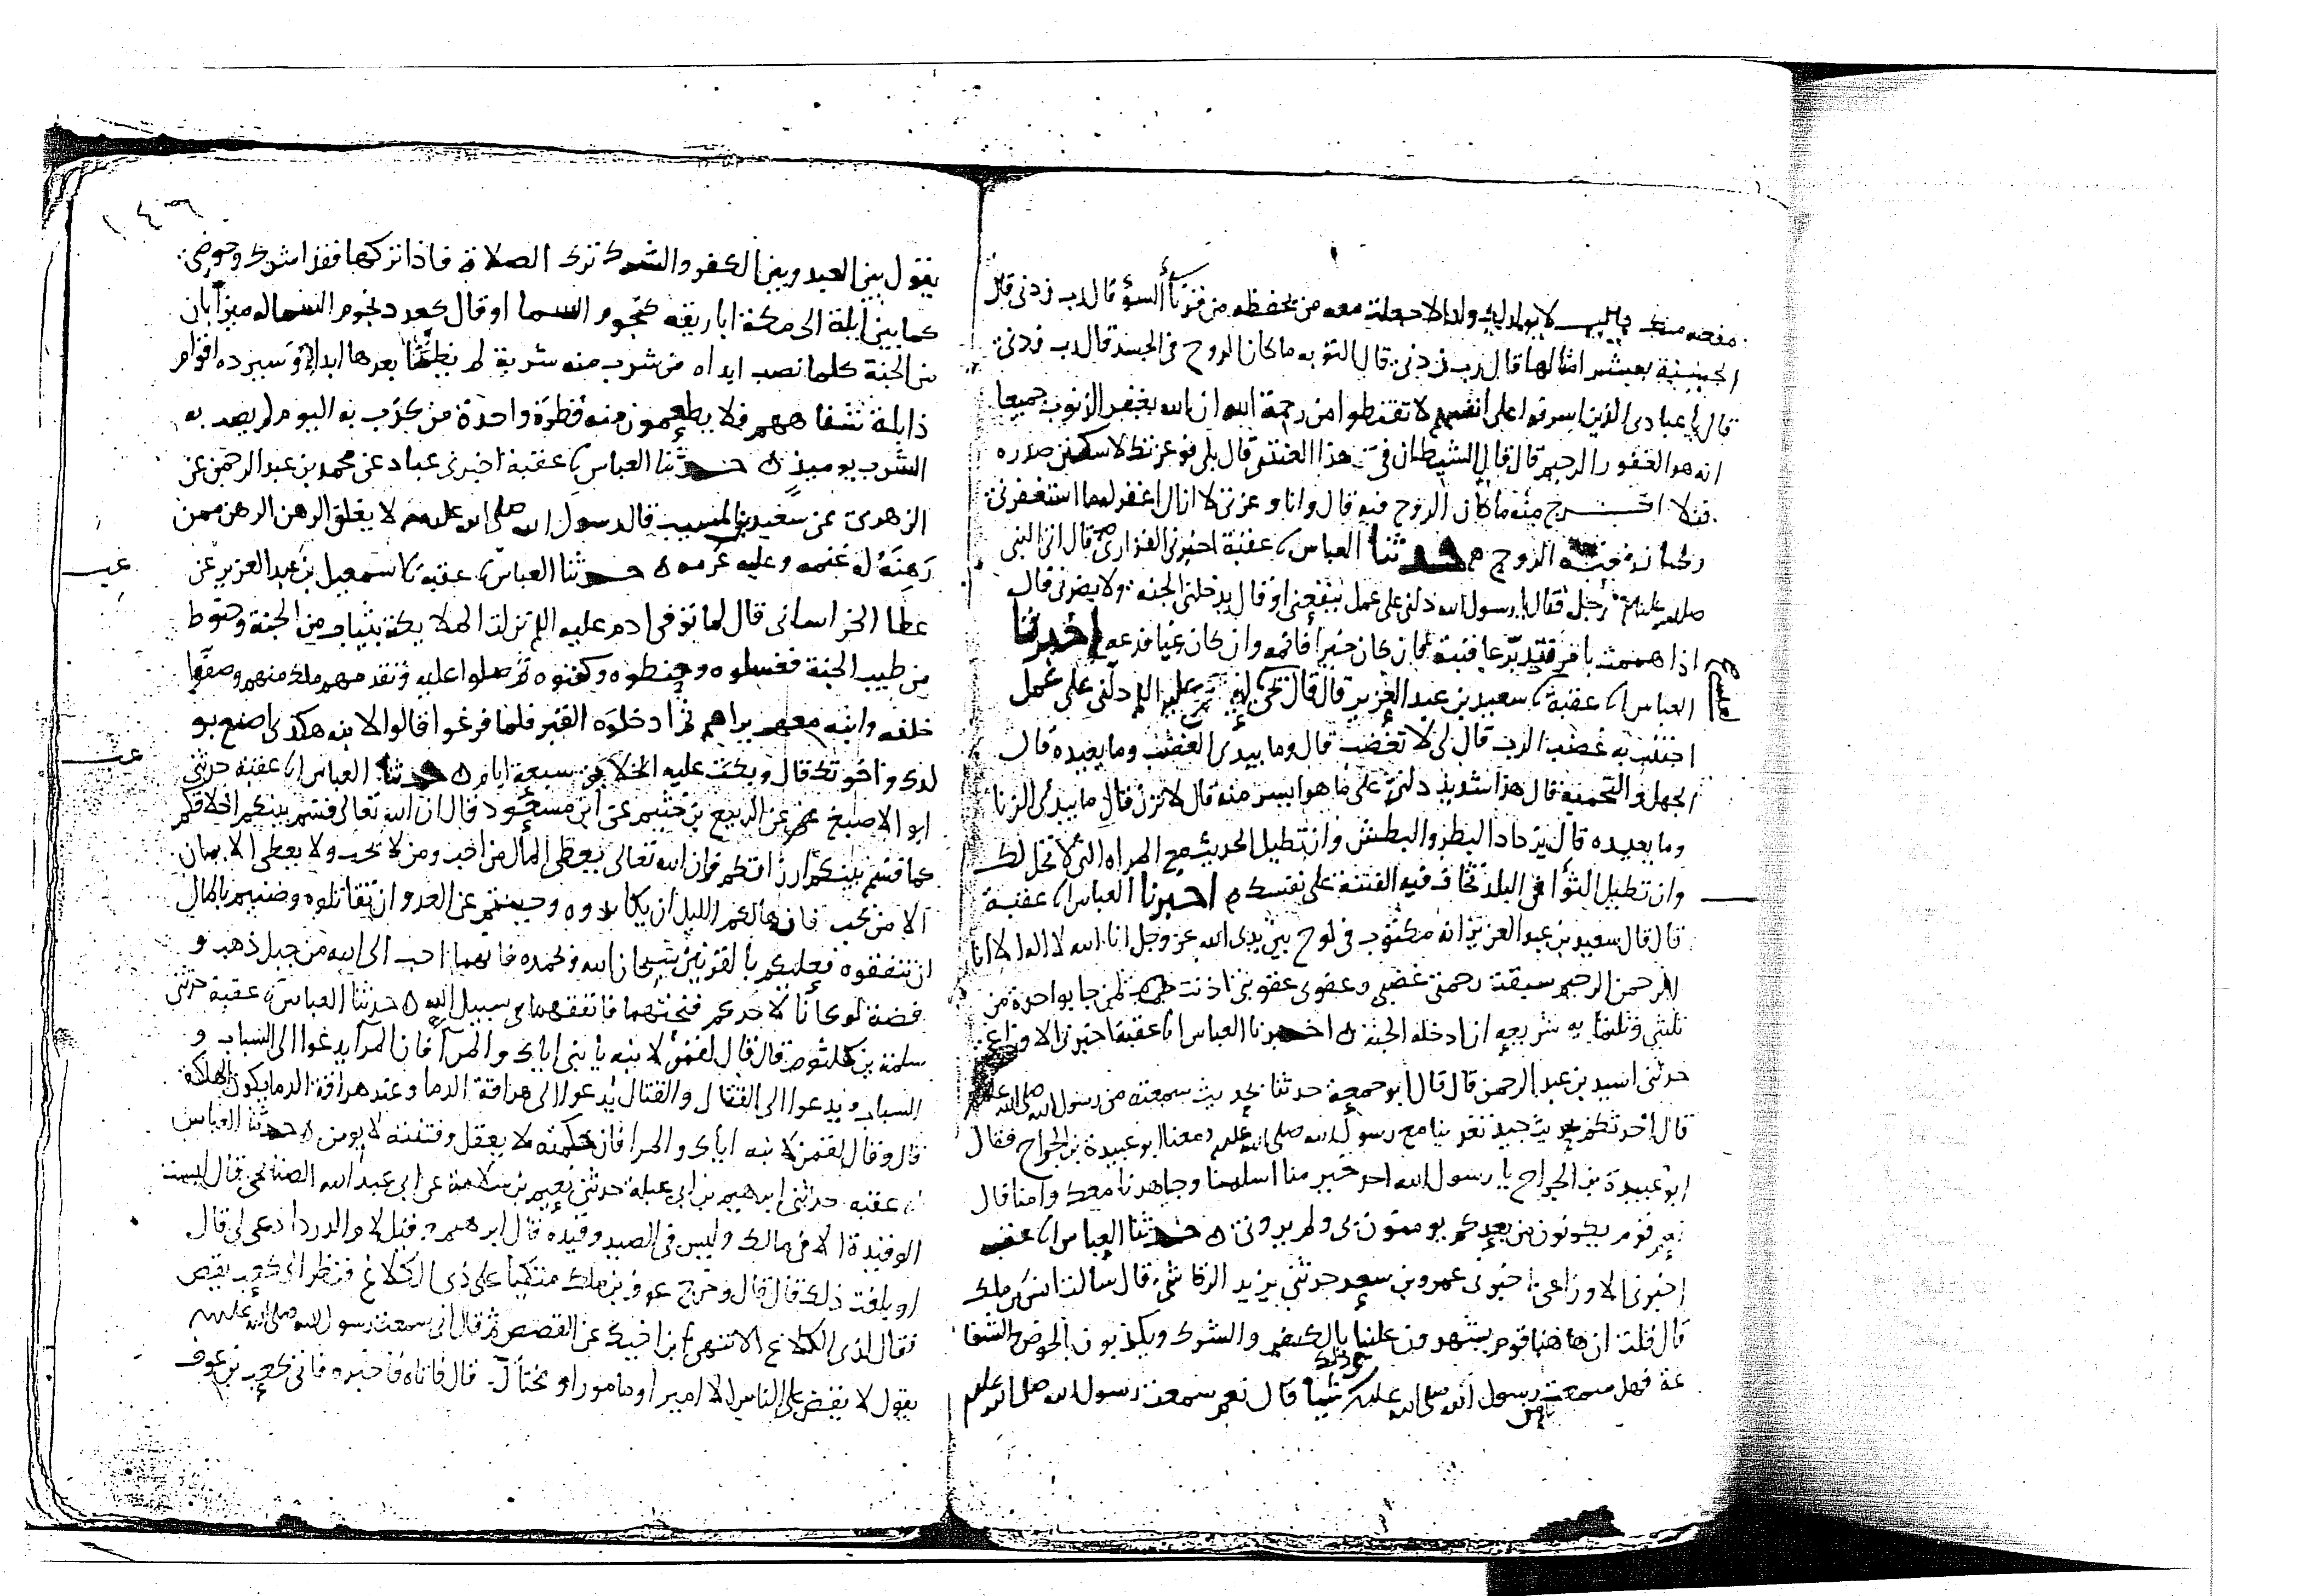 لا يولد لك ولد الا جعلت معه من يحفظه من قرنا السوء قال رب زدني قال
الحسنة بعشر امثالها قال رب زدني قال التوبه ما كان الروح في الجسد قال رب زدني
قال يا عبادي الذين اسرفوا على انفسهم لا تقنطوا من رحمة الله ان الله يغفر الذنوب جميعا
انه هو الغفور الرحيم قال قال الشيطان هذا قال بلى فوعزتك لا سكنن صدره
فلا اخرج منه ما كان الروح فيه قال وانا وعزتي لا ازال اغفر لهما استغفرني
الروح حدثنا العباس نا عقبة اخبرني الفزاري قال اتى النبي
صلى الله عليه رجل فقال يا رسول الله دلني على عمل ينفعني او قال يدخلني الجنة ولا يضرني قال
اذا هممت بامر فتدبر عاقبته فان كان خيرا فاته وان كان غيا فدعه اخبرنا
العباس نا عقبة نا سعيد بن عبد العزيز قال قال يحيى عليه السلم دلني على عمل
اجتنب به غضب الرب قال لي لا تغضب قال وما يبدي الغضب وما يعيده قال
الجهل والحمية قال هذا شديد دلني على ما هو ايسر منه قال لا تزن قال ما يبدئ الزنا
وما يعيده قال يزداد البطر والبطش وان تطيل الحديث مع المراه التي لا تحل لك
وان تطيل الثوا في البلد تخاف فيه الفتنة على نفسك اخبرنا العباس نا عقبة
قال قال سعيد بن عبد العزيز انه مكتوب في لوح بين يدي الله عز وجل انا الله لا اله الا انا
الرحمن الرحيم سبقت رحمتي غضبي وعفوي عقوبتي اذنت لمن جا بواحدة من
ثلثمائه شريعه ان ادخله الجنة اخبرنا العباس انا عقبة اخبرني الاوزاعي
حدثني اسيد بن عبد الرحمن قال قال ابو جمعة حدثنا بحديث سمعته من رسول الله صلى الله عليه
قال احدثكم حديث جيد تغدينا مع رسول الله صلى الله عليه ومعنا ابو عبيدة بن الجراح فقال
ابو عبيدة بن الجراح يا رسول الله احد خير منا اسلمنا وجاهدنا معك وامنا قال
نعم قوم يكونون من بعدكم يومنون بي ولم يروني حدثنا العباس نا عقبه
اخبرني الاوزاعي اخبرني عمرو بن سعد حدثني يزيد الرقاشي قال سالت انس بن ملك
قال قلت ان هاهنا قوم يشهدون علينا بالكفر والشرك ويكذبون بالحوض والشفا
عة فهل سمعت رسول الله صلى الله عليه شيا قال نعم سمعت رسول الله صلى الله عليه
١٤٦
يقول بين العبد وبين الكفر والشرك ترك الصلاة فاذا تركها فقد اشرك وحوضي
كما بين ايلة الى مكة اباريقه كنجوم السما او قال كعدد نجوم السما له ميزابان
من الجنة كلما نضب امداه من شرب منه شربة لم يظما بعدها ابدا وسيرده اقوام
ذابلة شفاههم فلا يطعمون منه قطرة واحدة من كذب به اليوم لم يصب به
الشرب يوميذ حدثنا العباس نا عقبة اخبرني عباد عن محمد بن عبد الرحمن عن
الزهري عن سعيد بن المسيب قال رسول الله صلى الله عليه لا يغلق الرهن الرهن ممن
رهنه له غنمه وعليه غرمه حدثنا العباس نا عقبة نا اسمعيل بن عبد العزيز عن
عطا الخراساني قال لما توفي ادم عليه السلم نزلت الملايكة بثياب من الجنة وحنوط
من طيب الجنة فغسلوه وحنطوه وكفنوه ثم صلوا عليه وتقدمهم ملك منهم وصفوا
خلفه وابنه معهم يراهم ثم ادخلوه القبر فلما فرغوا قالوا لابنه هكذى اصنع بو
لدك واخوتك قال وبكت عليه الخلايق سبعة ايام حدثنا العباس نا عقبة حدثني
ابو الاصبغ عن الربيع بن خثيم عن ابن مسعود قال ان الله تعالى قسم بينكم اخلاقكم
كما قسم بينكم ارزاقكم وان الله تعالى يعطي المال من احب ومن لا يحب ولا يعطي الايمان
الا من يحب فان هالكم الليل ان تكابدوه وجبنتم عن العدو ان تقاتلوه وضننتم بالمال
ان تنفقوه فعليكم بالقرينتين سبحان الله وبحمده فانهما احب الى الله من جبل ذهب و
فضة لو كانا لاحدكم فنحتهما فانفقهما في سبيل الله حدثنا العباس نا عقبة حدثني
سلمة بن كلثوم قال قال لقمن لابنه يا بني اياك والمرا فان المرا يدعوا الى السباب و
السباب يدعوا الى القتال والقتال يدعوا الى هراقة الدما وعند هراقة الدما يكون الهلاكة
قال وقال لقمن لابنه اياك والمرا فان حكمته لا يعقل وفتنته لا يومن حدثنا العباس
نا عقبه حدثني ابرهيم بن ابي عبلة حدثني نعيم بن سلامة عن ابي عبد الله الصنابحي قال ليست
قال ابرهيم وقيل لام الدردا ادعي لي قال
او بلغت ذلك قال قال وخرج عوف بن ملك متكيا على ذي الكلاع فنظر الى كعب يقص
فقال لذي الكلاع الا تنهى ابن اخيك عن القصص ثم قال اني سمعت رسول الله صلى الله عليه
يقول لا يقص على الناس الا امير او مامور او مختال قال فاتاه فاخبره فاتى كعب بن عوف